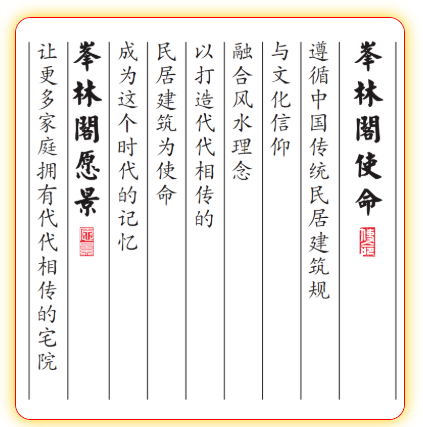 峯林閣使命
遵循中国传统民居建筑规
与文化信仰
融合风水理念
以打造代代相传的
民居建筑为使命
成为这个时代的记忆
峯林閣愿景
让更多家庭拥有代代相传的宅院